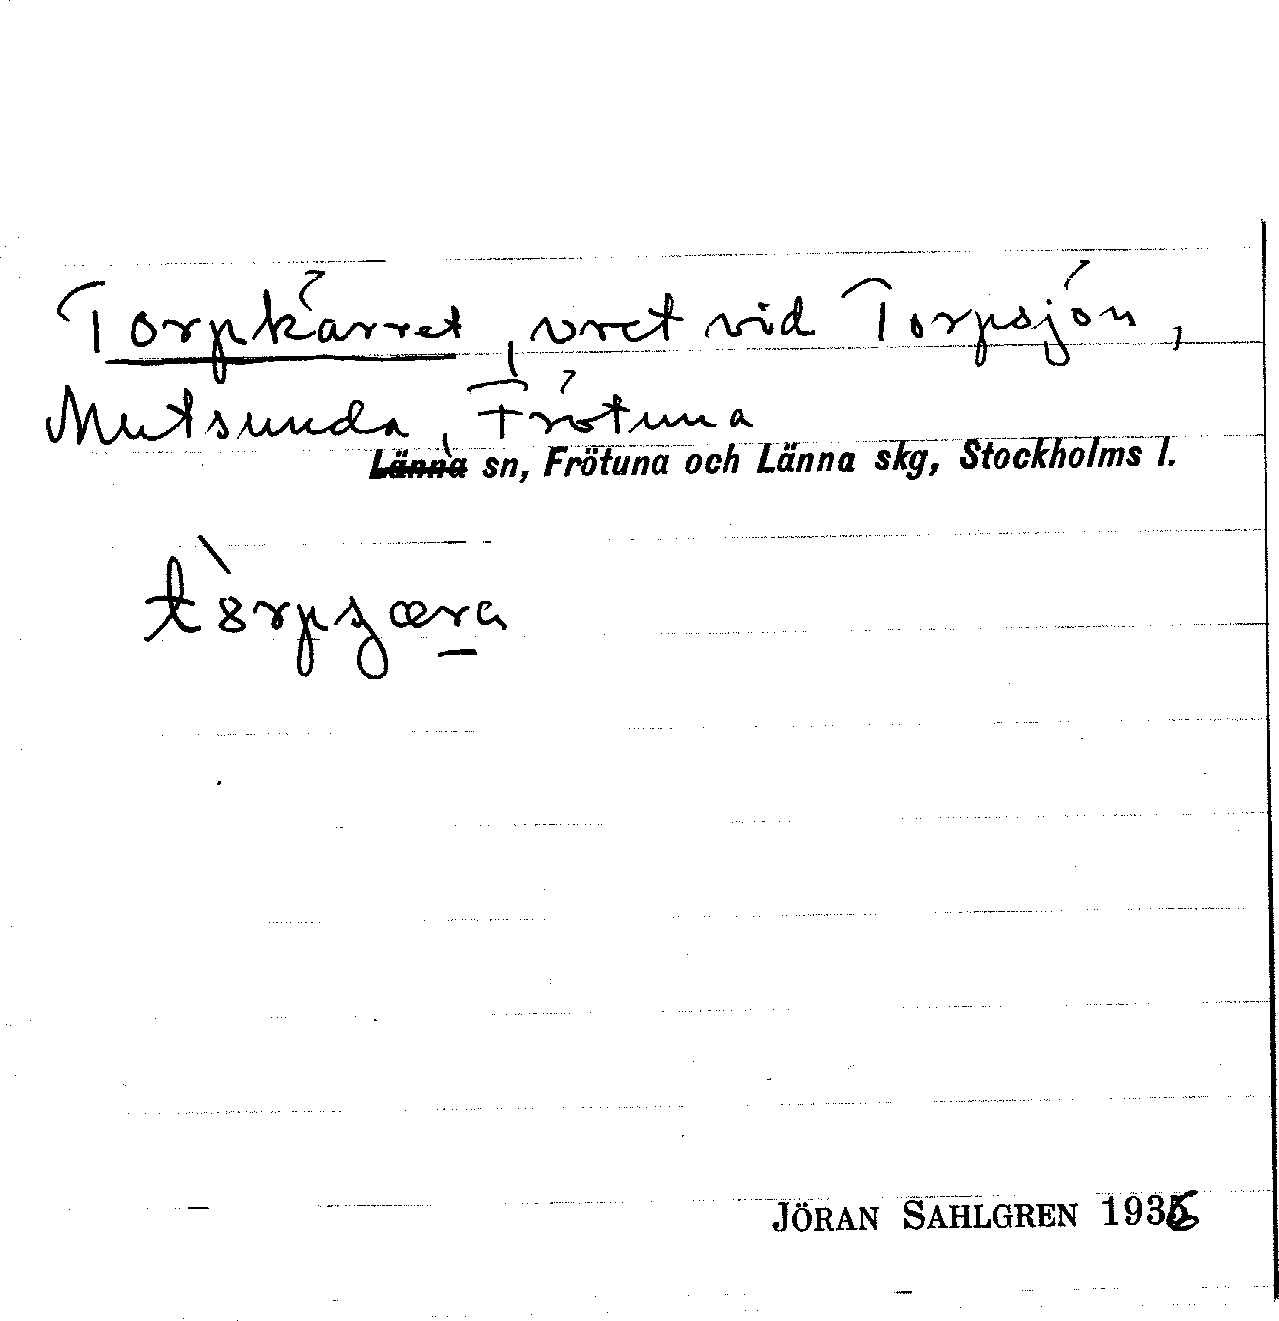 Torpkärret, vret vid Torpsjön,
Mutsunda, Frötuna
Länna sn, Frötuna och Länna skg, Stockholms l.
JÖRAN SAHLGREN 1936